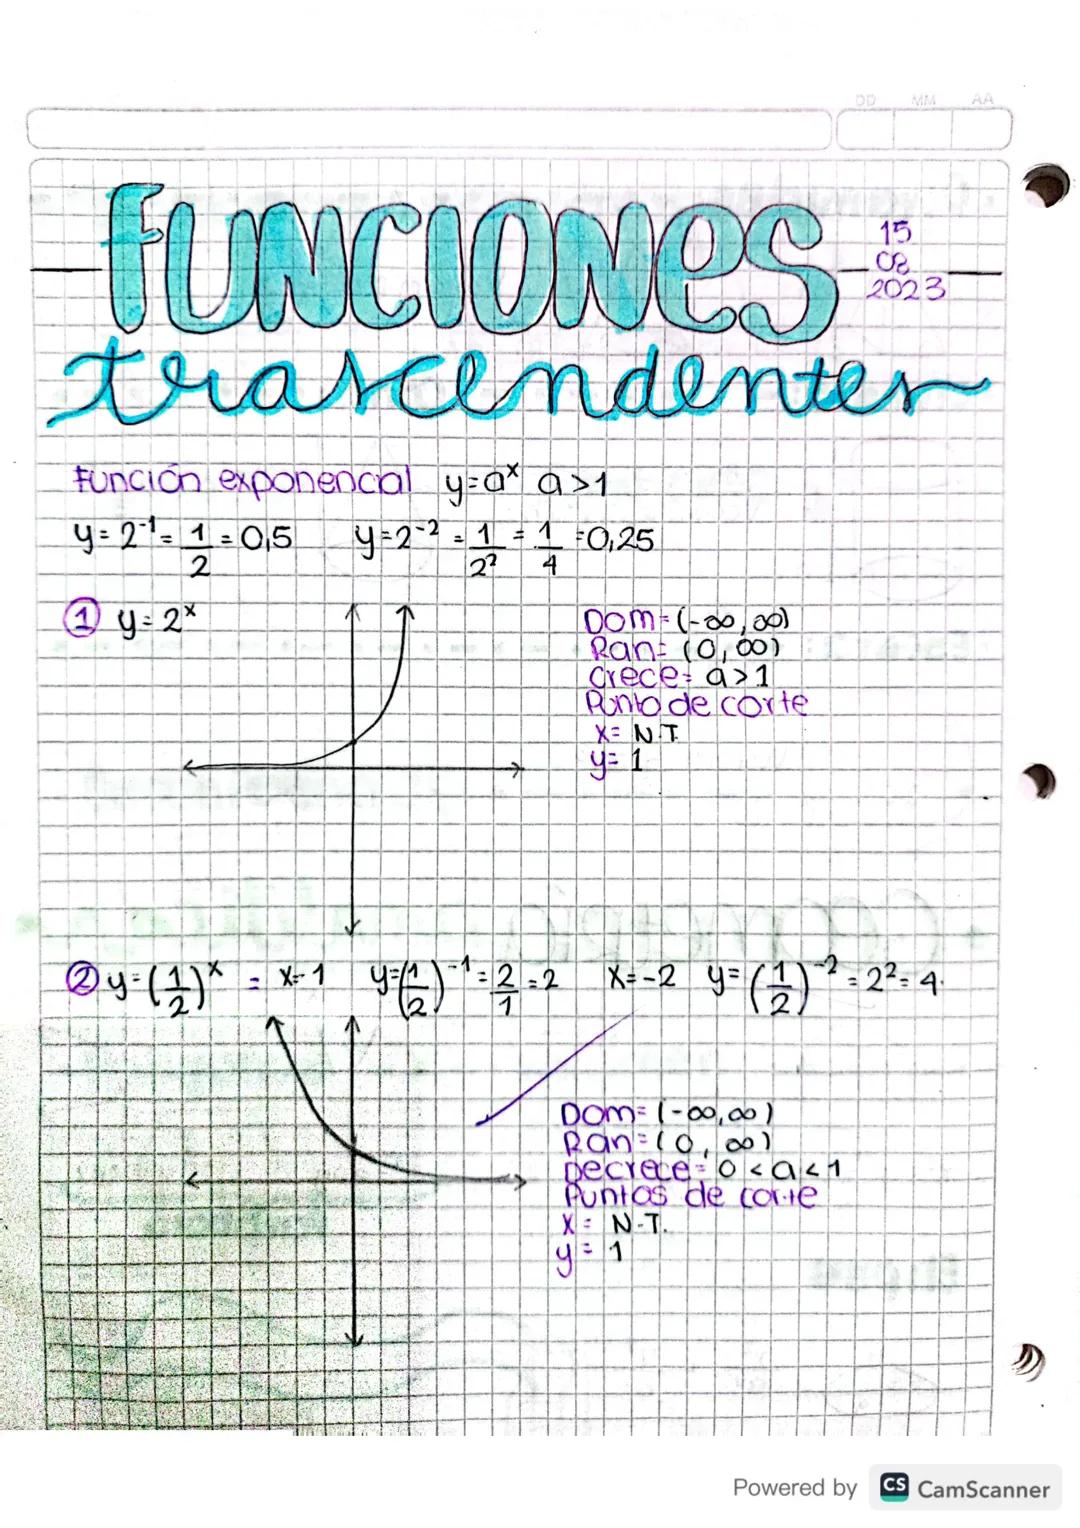 DD MM AA
FUNCIONES
15
08
2023
trascendentes
Función exponencial y=aˣ a>1
y=2⁻¹=1/2=0,5 y=2⁻²=1/2²=1/4=0,25
① y=2ˣ
Dom=(-∞,∞)
Ran=(0,∞)
Crece=a>1
Punto de corte
x= N.T.
y= 1
② y=(1/2)ˣ = x-1 y=(1/2)⁻¹=2/1=2 x=-2 y=(1/2)⁻²=2²=4.
Dom=(-∞,∞)
Ran=(0,∞)
Decrece=0<a<1
Puntos de corte
x= N-T.
y= 1
Powered by CS CamScanner